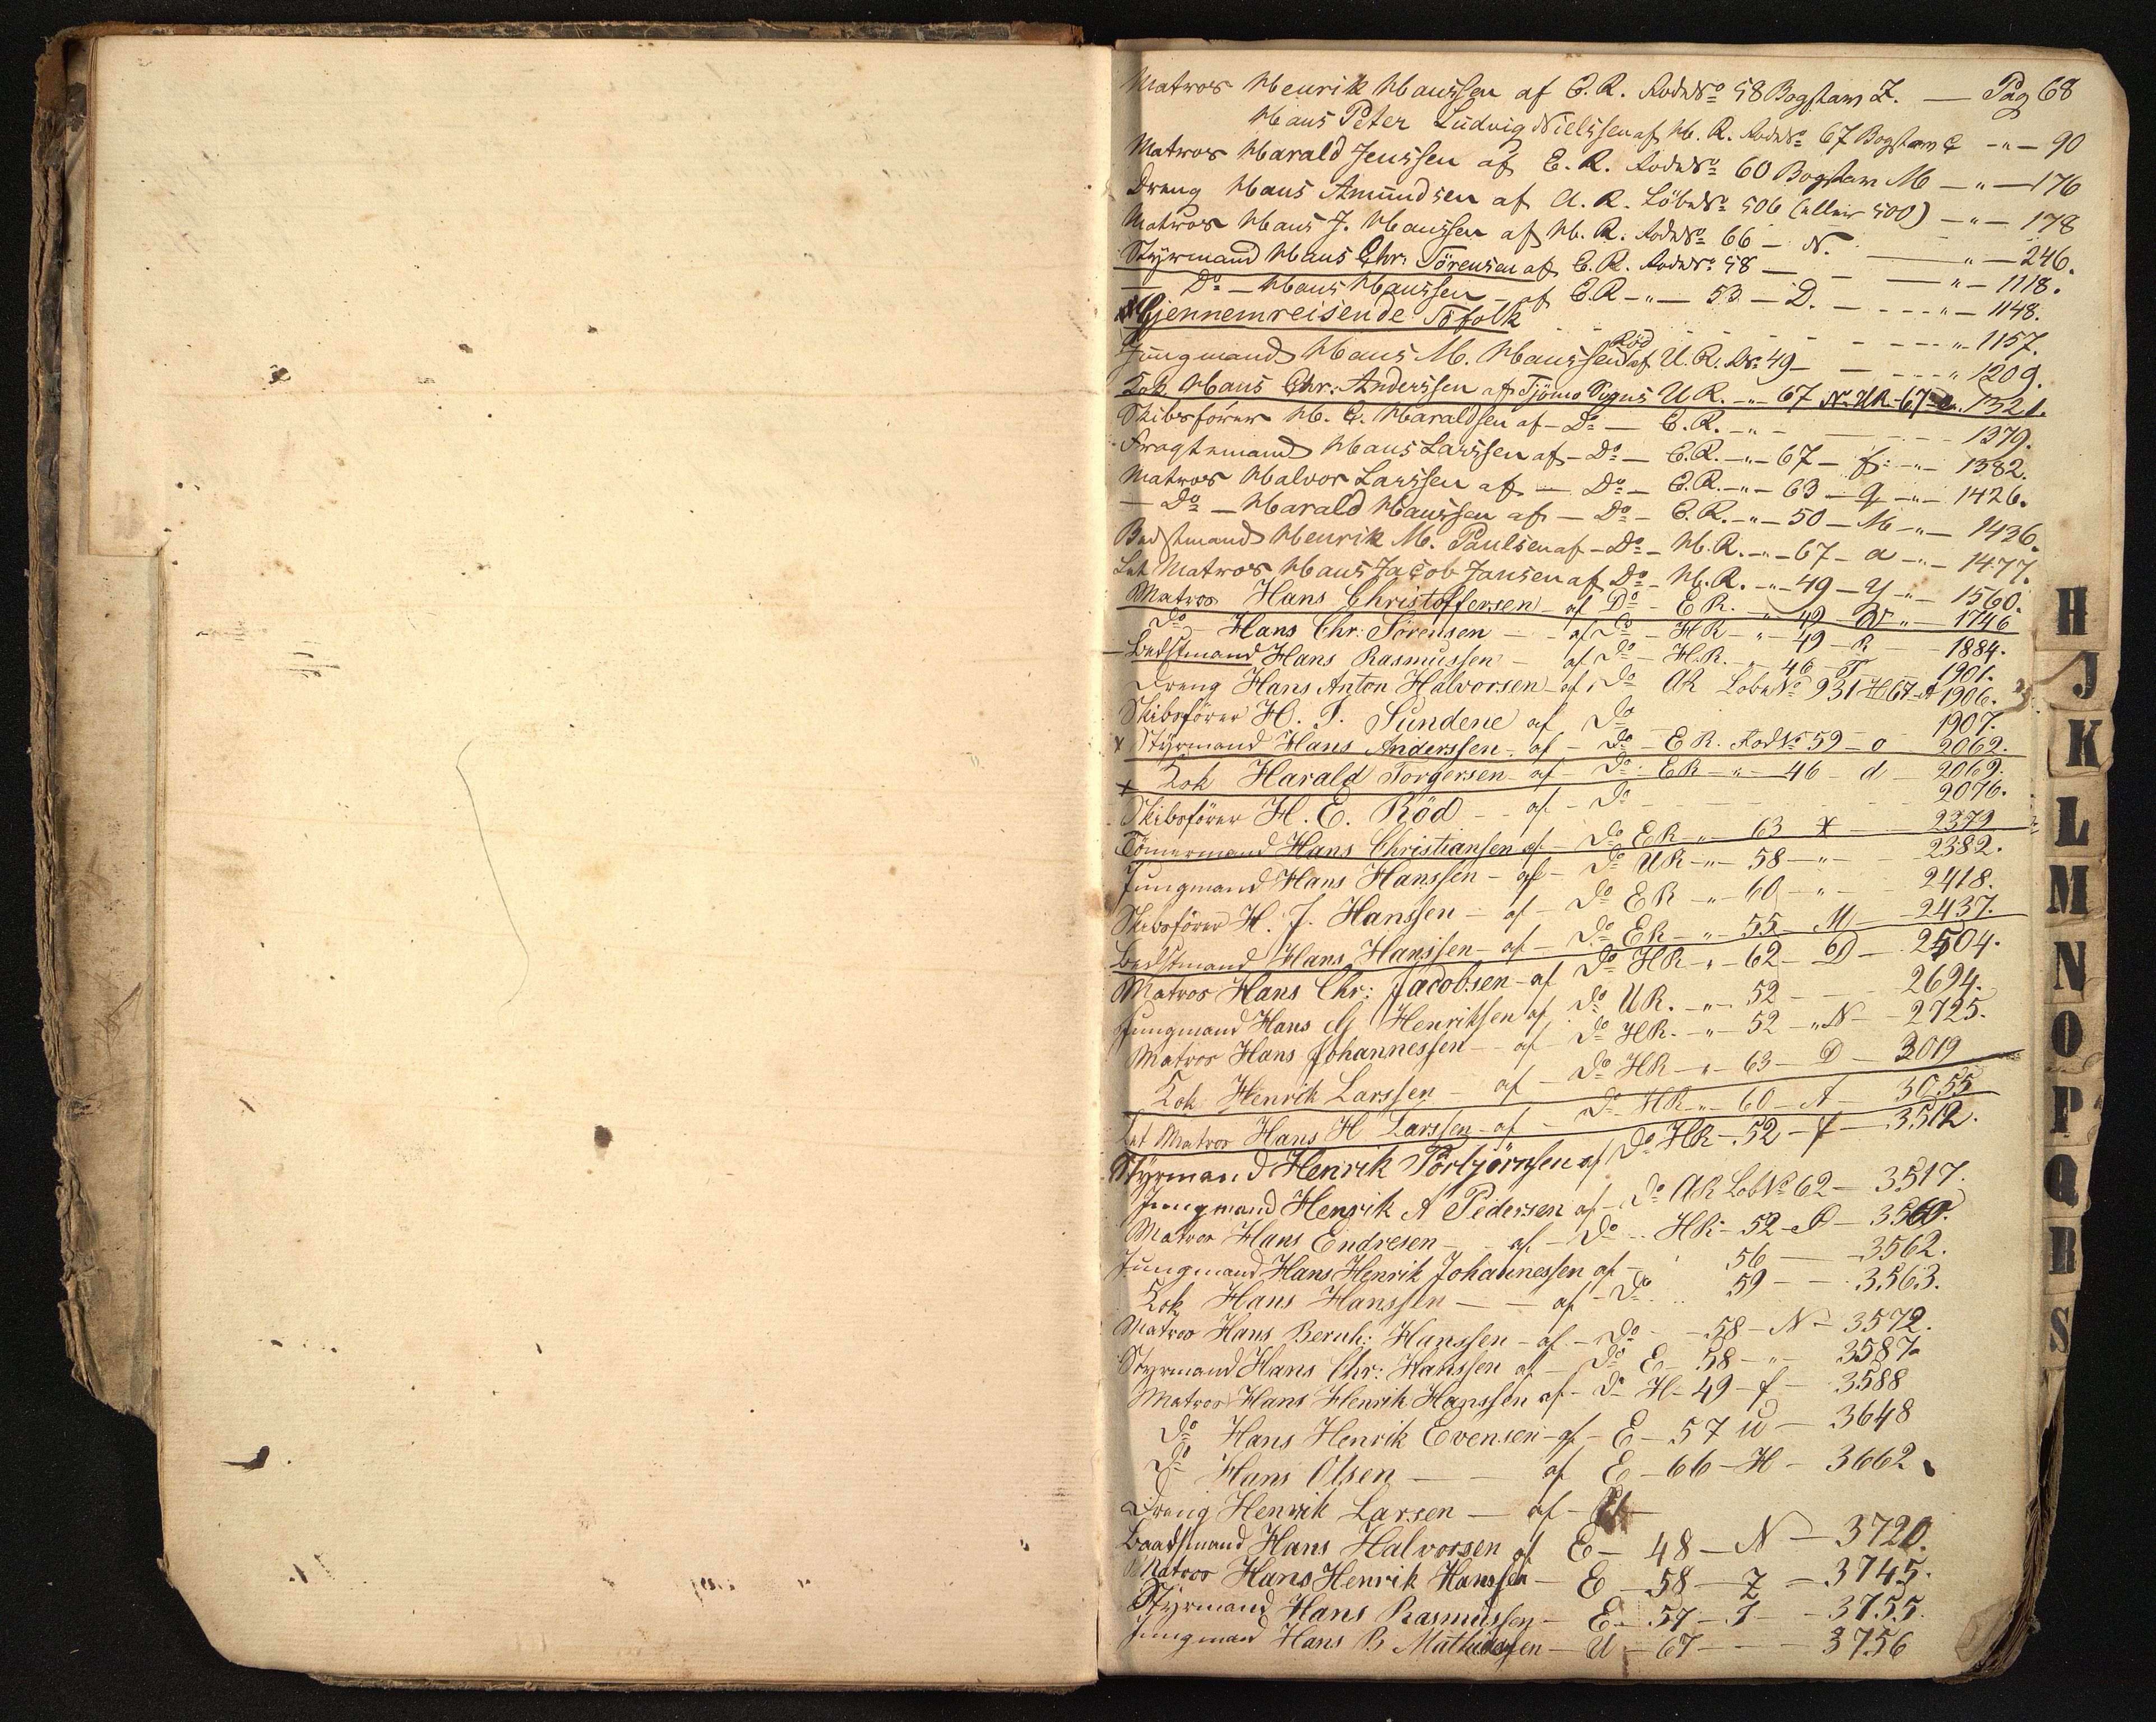 Matros Henrik Hanssen af E. R. RodeNo 58 Bogstav Z. — Pag 68
Hans Peter Ludvig Nielssen af H. R. RodeNo 67 Bogstav — " — 90
Matros Harald Jenssen af E. R. RodeNo 60 Bogstav M — " — 176
Dreng Hans Amundsen af A. R. LöbeNo 506 (eller 500) — " — 178
Matros Hans J. Hanssen af H. R. RodeNo 66 — N. — " — 246.
Styrmand Hans Chr: Sörensen af E. R. RodeNo 58 — — " — 1118.
— Do — Hans Hanssen — af E.R — " — 53 — D. — " — 1148.
Gjennemreisende Söfolk — " 1157.
Jungmand Hans M. Hanssen Röd af U. R. No 49 — — " 1209.
Kok Hans Chr: Anderssen af Tjömö Sogns U R. — " 67 N. HR 67 1321.
Skibsförer H. C. Haraldsen af — Do — E. R. — " — 1379.
Fragtemand Hans Larssen af — Do — E.R. — " — 67 — f: — " — 1382.
Matros Halvor Larssen af — Do — E.R. — " — 63 — q — " — 1426.
— Do — Harald Hanssen af — Do — E. R. — " — 50 — M — " — 1436.
Bedstmand Henrik M. Paulsen af — Do — H. R. — " — 67 — a — " — 1477.
Let Matros Hans Jacob Jansen af Do — H. R. — " 49 — Y " — 1560.
Matros Hans Christoffersen — af Do — E R. — " 49 — " — 1746
Do Hans Chr: Sörensen — af Do — HR — " 49 — R — 1884.
Bedstmand Hans Rasmussen — af Do — H.R. " 46 — T 1901.
Dreng Hans Anton Halvorsen — af Do AR LobeNo 931 H 67 — A 1906.
Skibsförer H. J. Sundene af Do 1907.
x Styrmand Hans Anderssen — af — Do — E R. RodNo 59 — o 2062.
x Kok Harald Torgersen — af — Do — ER — " — 46 — d — 2069.
Skibsförer H. E. Röd — af — Do 2076.
Tömermand Hans Christiansen af — Do ER — " — 63 x — 2379
Jungmand Hans Hanssen — af — Do UR — " — 58 — " — 2382.
Skibsförer H. J. Hanssen — af — Do ER — " 60 — " — 2418.
Bedstmand Hans Hanssen — af — Do ER — " 55 — M — 2437.
Matros Hans Chr: Jacobsen — af Do HR — " 62 — D — 2504.
Jungmand Hans M Henriksen af Do UR. — " 52 — 2694.
Matros Hans Johannessen — af — Do HR. — " — 52 — " N — 2725.
Kok Henrik Larssen — af — Do HR — " 63 — D — 3019
Let Matros Hans H Larssen — af — Do HR — " 60 — A — 3055
Styrmand Henrik Torbjörnsen af Do HR — 52 — f — 3512.
Jungmand Henrik A Pedersen af — Do AR LobNo 62 — 3517.
Matros Hans Endresen — af — Do HR — 52 — — 3560.
Jungmand Hans Henrik Johannessen af — 56 — 3562.
Kok Hans Hanssen — — af — Do 59 — — 3563.
Matros Hans Bernh: Hanssen — af — Do — 58 — N — 3572.
Styrmand Hans Chr: Hanssen af — Do E — 58 — " 3587
Matros Hans Henrik Hanssen af — Do H — 49 — f — 3588
Do Hans Henrik Evensen — af — E — 57 w — 3648
Do Hans Olsen — — af E — 66 — H — 3662
Dreng Henrik Larsen — af —
Baadsmand Hans Halvorsen af E — 48 — N — 3720.
Matros Hans Henrik Hanssen — E — 58 — Z — 3745.
Styrmand Hans Rasmussen — E — 57 — T — 3755.
Jungmand Hans B Mathiassen — U — 67 — 3756
H
J
K
L
M
N
O
P
Q
R
S